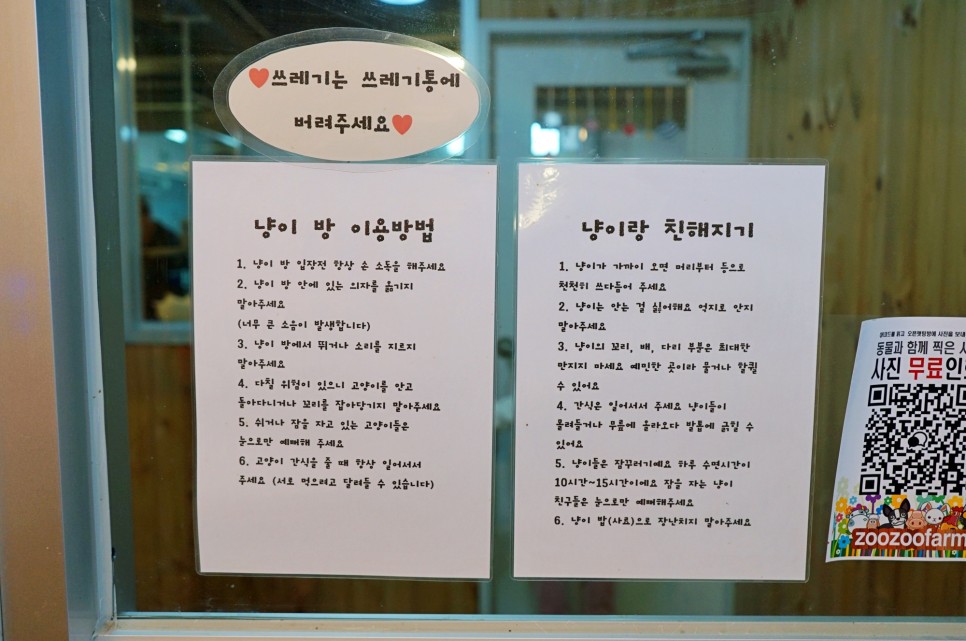 ♥쓰레기는 쓰레기통에
버려주세요♥
냥이 방 이용방법
1. 냥이 방 입장전 항상 손 소독을 해주세요
2. 냥이 방 안에 있는 의자를 옮기지
말아주세요
(너무 큰 소음이 발생합니다)
3. 냥이 방에서 뛰거나 소리를 지르지
말아주세요
4. 다칠 위험이 있으니 고양이를 안고
돌아다니거나 꼬리를 잡아당기지 말아주세요
5. 쉬거나 잠을 자고 있는 고양이들은
눈으로만 예뻐해 주세요
6. 고양이 간식을 줄 때 항상 일어서서
주세요 (서로 먹으려고 달려들 수 있습니다)
냥이랑 친해지기
1. 냥이가 가까이 오면 머리부터 등으로
천천히 쓰다듬어 주세요
2. 냥이는 안는 걸 싫어해요 억지로 안지
말아주세요
3. 냥이의 꼬리, 배, 다리 부분은 최대한
만지지 마세요 예민한 곳이라 물거나 할퀼
수 있어요
4. 간식은 일어서서 주세요 냥이들이
몰려들거나 무릎에 올라오다 발톱에 긁힐 수
있어요
5. 냥이들은 잠꾸러기예요 하루 수면시간이
10시간~15시간이에요 잠을 자는 냥이
친구들은 눈으로만 예뻐해주세요
6. 냥이 밥(사료)으로 장난치지 말아주세요
동물과 함께 찍은
사진 무료인
zoozoofarm